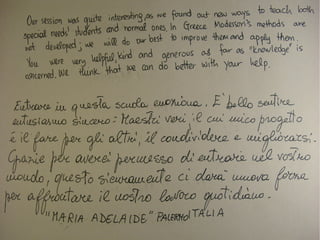 Our session was quite interesting, as we found out new ways to teach both
special needs' students and normal ones. In Greece Modessori's methods are
not developed; we will do our best to improve them and apply them.
You were very helpful, kind and generous as far as "knowledge" is
concerned. We think that we can do better with your help.
Entrare in questa scuola emoziona. E' bello sentire
entusiasmo sincero: Maestri veri il cui unico progetto
è il fare per gli altri, il condividere e migliorarsi.
Grazie per averci permesso di entrare nel vostro
mondo, questo sicuramente ci darà nuova forza
per affrontare il nostro lavoro quotidiano.
"MARIA ADELAIDE" PALERMO ITALIA